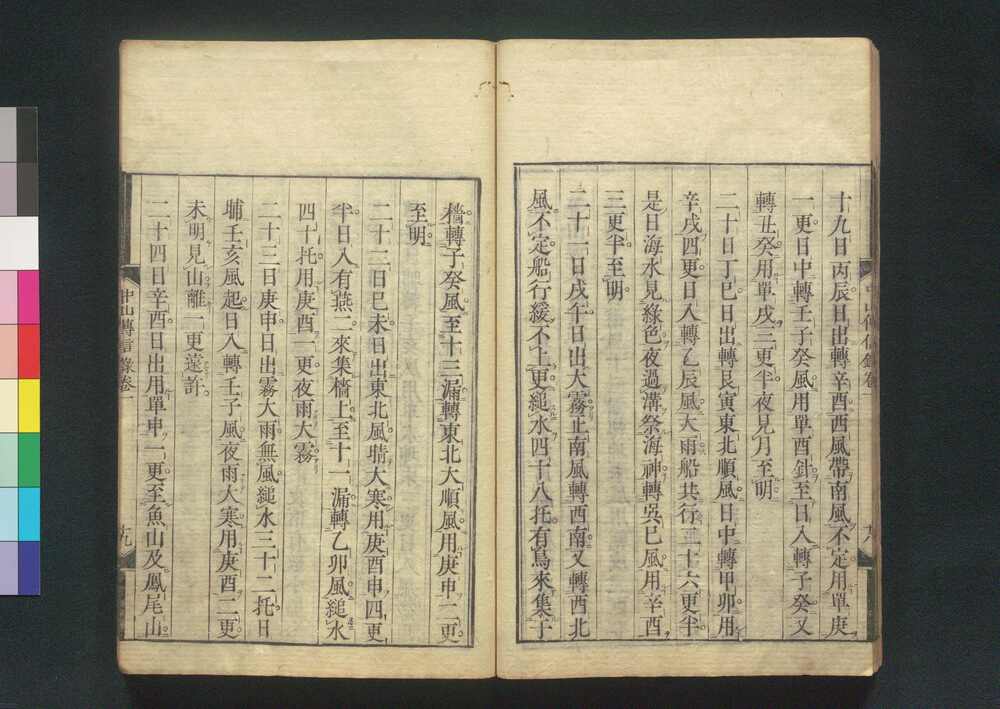 十九日丙辰日出轉辛酉西風帶南風不定用單庚
一更日中轉壬子癸風用單酉針至日入轉子癸又
轉丑癸用單戌三更半夜見月至明
二十日丁巳日出轉艮寅東北順風日中轉甲卯用
辛戌四更日入轉乙辰風大雨船共行二十六更半
是日海水見綠色夜過溝祭海神轉巽巳風用辛酉
三更半至明
二十一日戊午日出大霧正南風轉西南又轉西北
風不定船行緩不上更縋水四十八托有鳥來集于
檣轉子癸風至十三漏轉東北大順風用庚申二更
至明
二十二日己未日出東北風晴大寒用庚酉申四更
半日入有燕二來集檣上至十一漏轉乙卯風縋水
四十托用庚酉一更夜雨大霧
二十三日庚申日出霧大雨無風縋水三十二托日
晡壬亥風起日入轉壬子風夜雨大寒用庚酉二更
未明見山離一更遠許
二十四日辛酉日出用單申一更至魚山及鳳尾山
中山傳信錄卷一
九